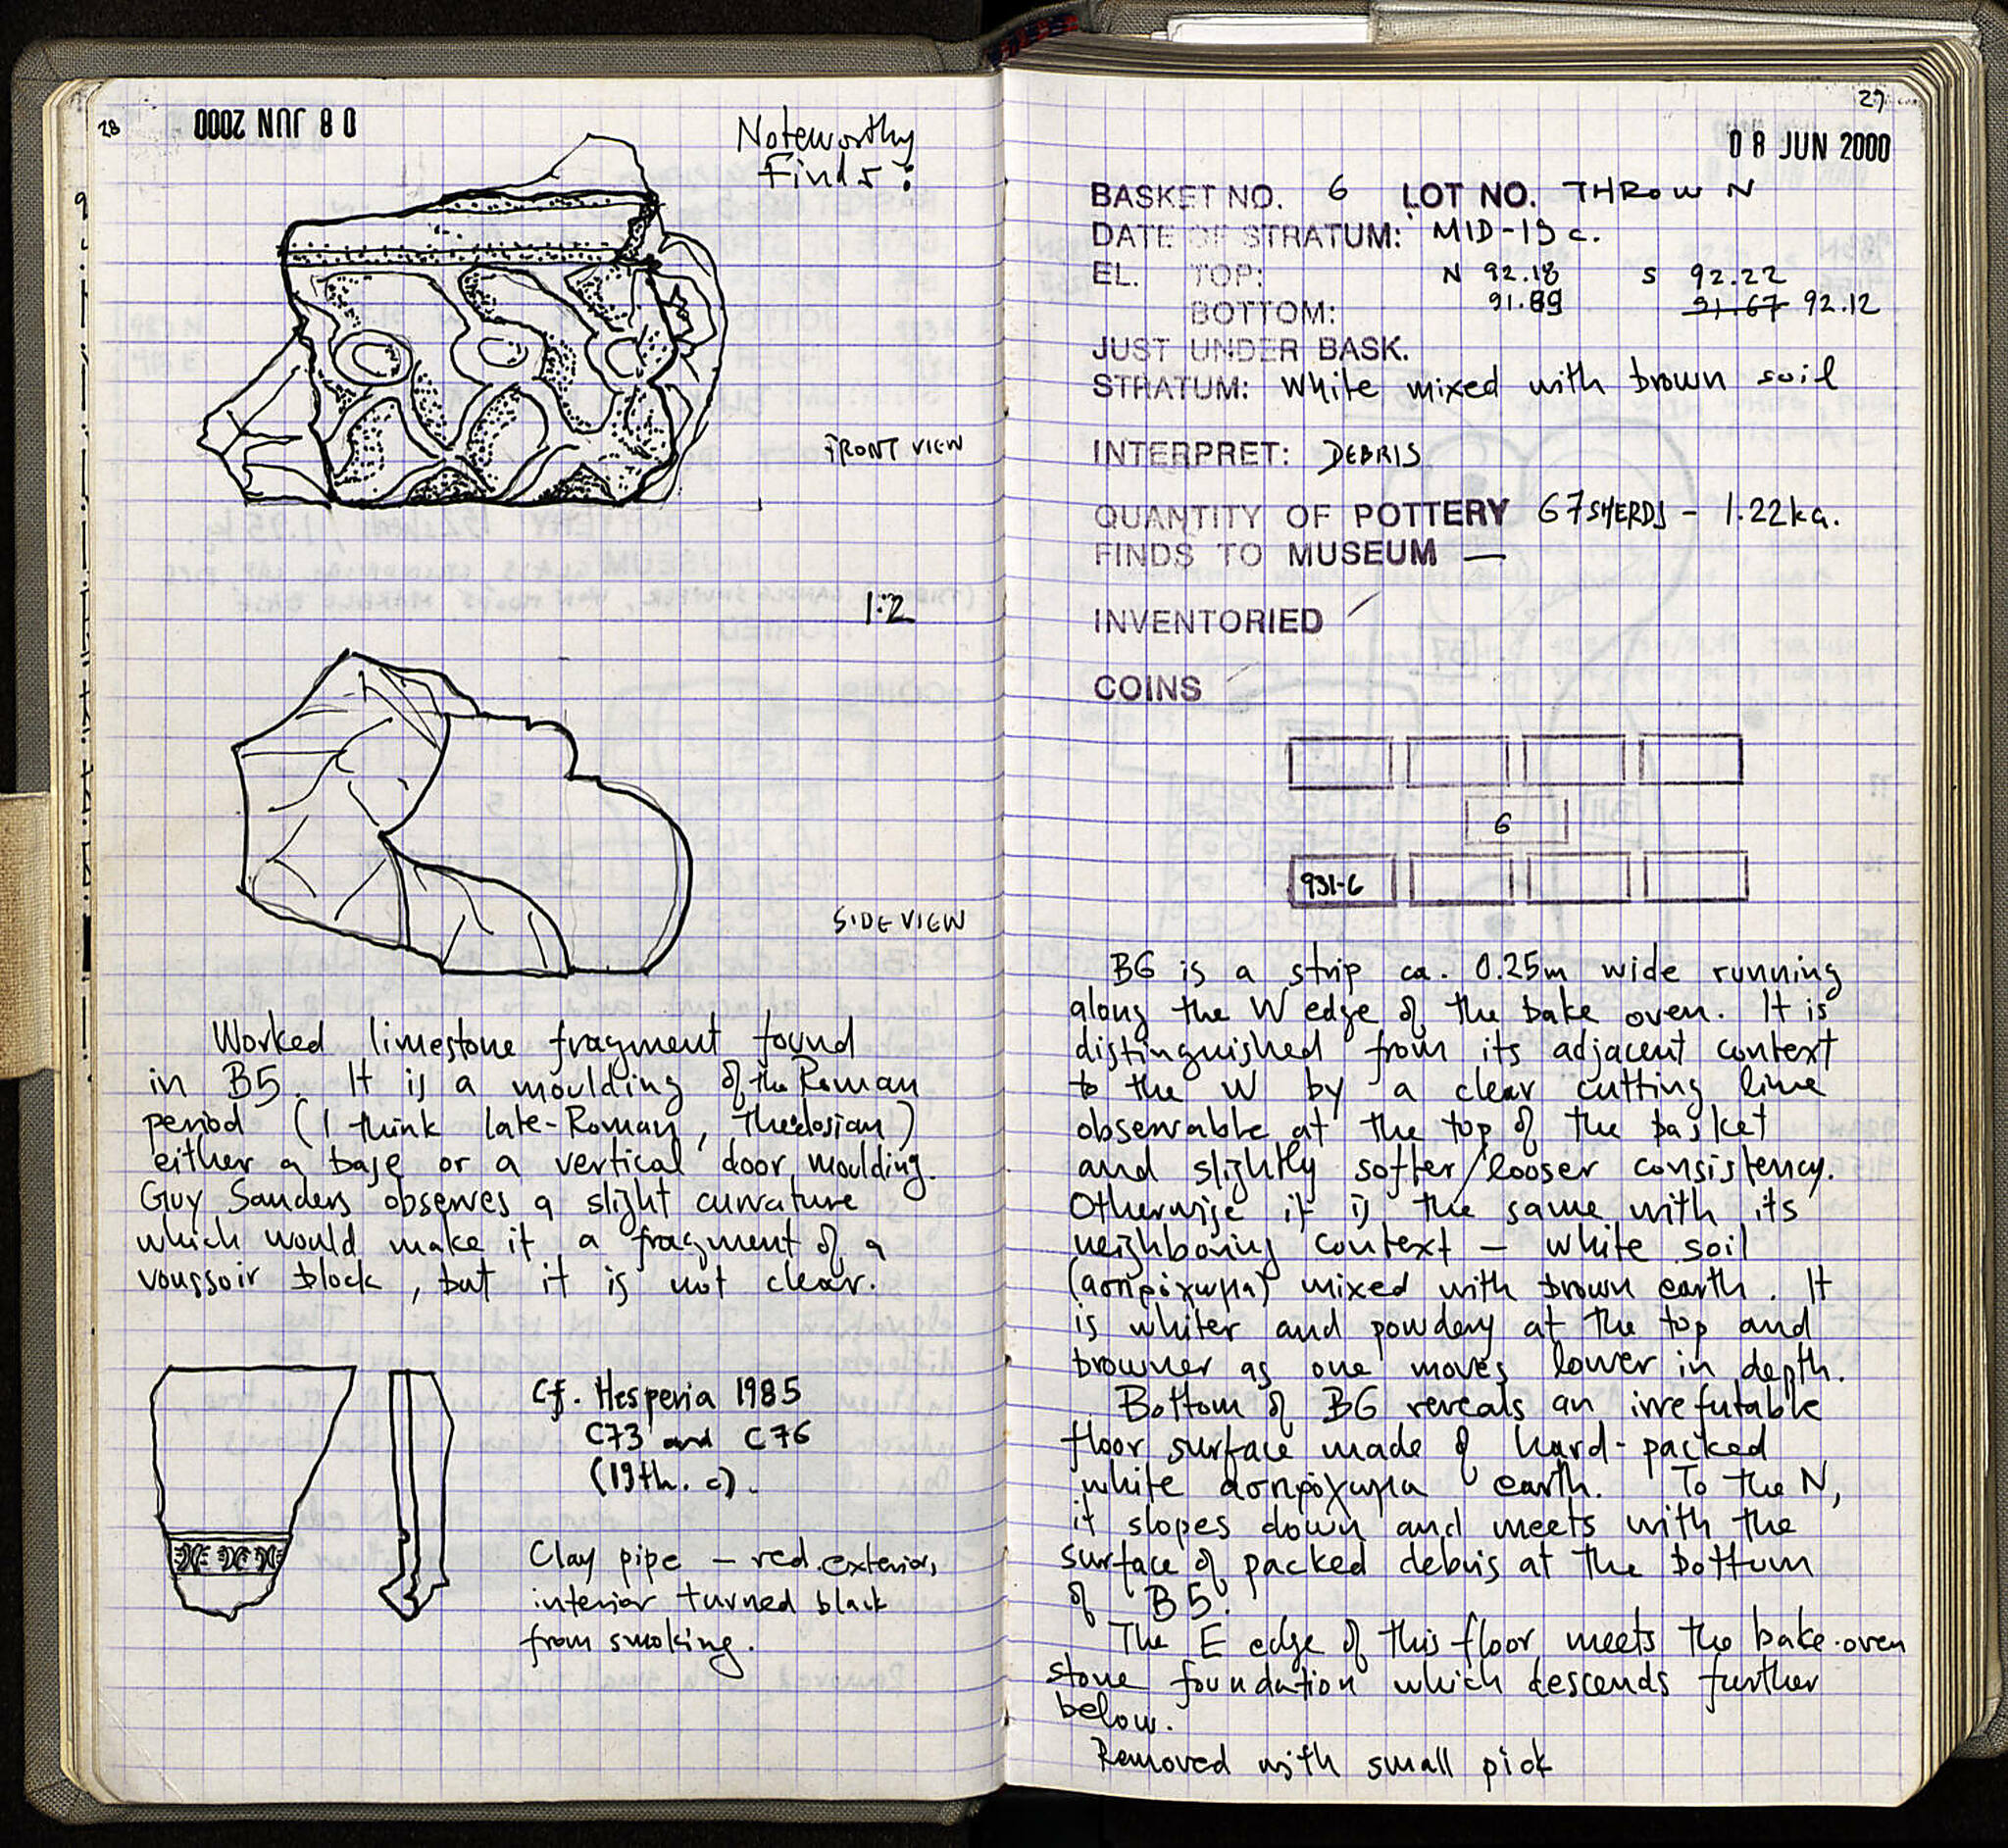 28
08 JUN 2000
Noteworthy
Finds:
FRONT VIEW
1:2
SIDE VIEW
Worked limestone fragment found
in B5. It is a moulding of the Roman
period (I think late-Roman, Theodosian)
either a base or a vertical door moulding.
Guy Sanders observes a slight curvature
which would make it a fragment of a
voussoir block, but it is not clear.
Cf. Hesperia 1985
C73 and C76
(19th. c).
Clay pipe – red exterior,
interior turned black
from smoking.
29
08 JUN 2000
BASKET NO. 6 LOT NO. THROW N
DATE OF STRATUM: MID-19 c.
EL. TOP: N 92.18 S 92.22
BOTTOM: 91.89 91.67 92.12
JUST UNDER BASK.
STRATUM: White mixed with brown soil
INTERPRET: DEBRIS
QUANTITY OF POTTERY 67 SHERDS – 1.22kg.
FINDS TO MUSEUM —
INVENTORIED
COINS
6
931-6
B6 is a strip ca. 0.25m wide running
along the W edge of the bake oven. It is
distinguished from its adjacent context
to the W by a clear cutting line
observable at the top of the basket
and slightly softer/looser consistency.
Otherwise it is the same with its
neighboring context – white soil
(ασπρόχωμα) mixed with brown earth. It
is whiter and powdery at the top and
browner as one moves lower in depth.
Bottom of B6 reveals an irrefutable
floor surface made of hard-packed
white ασπρόχωμα earth. To the N,
it slopes down and meets with the
surface of packed debris at the bottom
of B5.
The E edge of this floor meets the bake-oven
stone foundation which descends further
below.
Removed with small pick